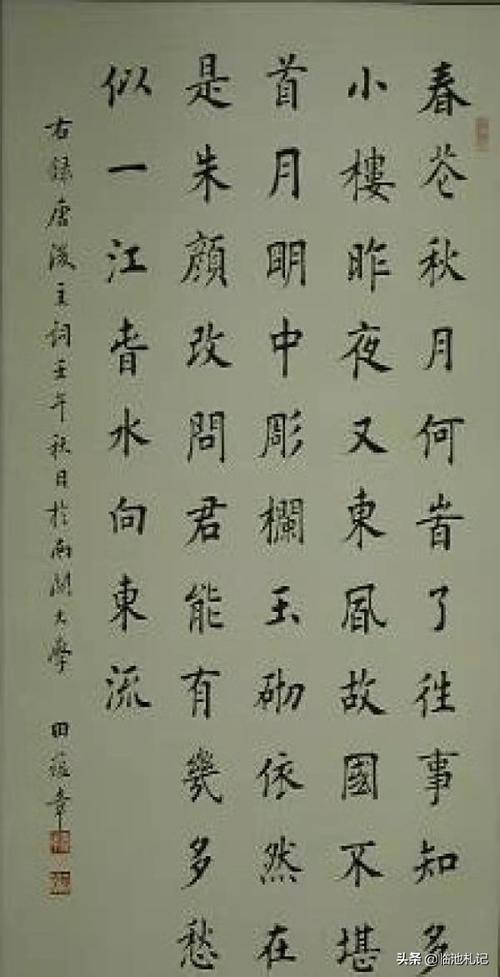 春花秋月何旹了往事知多
小樓昨夜又東風故國不堪
首月明中彫欄玉砌依然在
是朱顏改問君能有幾多愁
似一江旾水向東流
右録唐後主詞壬午秋日於南開大學 田蘊章
头条 @临池札记